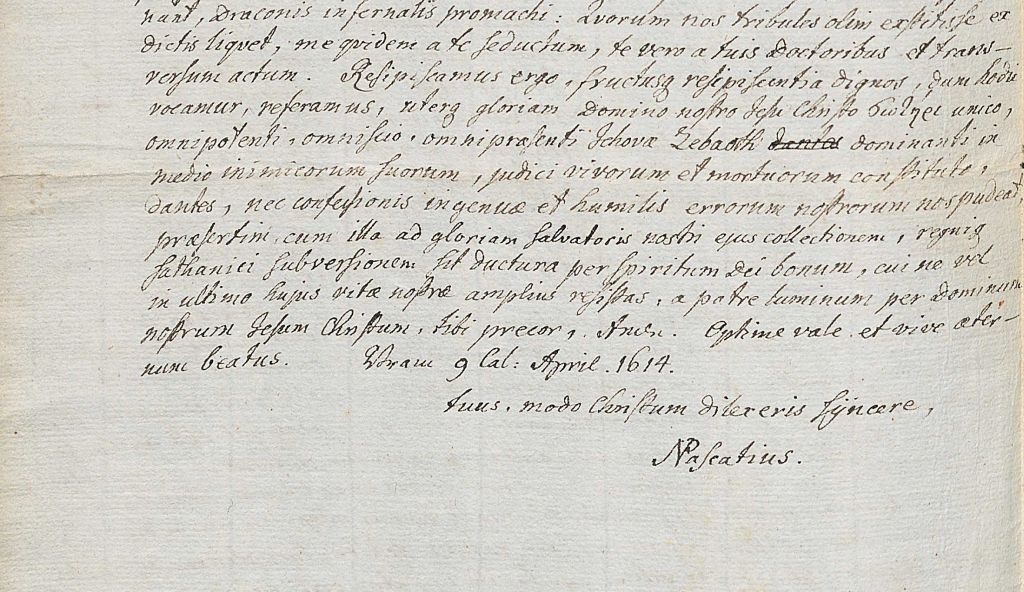 nant, Draconis infernalis promachi: Quorum nos tribules olim exstitisse ex
dictis liquet, me quidem a te seductum, te vero a tuis Doctoribus et trans-
versum actum. Resipiscamus ergo, fructusq resipiscentia dignos, dum hodie
vocamur, referamus, uterq gloriam Domino nostro Jesu Christo unico,
omnipotenti, omniscio, omnipræsenti Jehovæ Zebaoth dantes dominanti in
medio inimicorum suorum, judici vivorum et mortuorum constituto,
dantes, nec confessionis ingenuæ et humilis errorum nostrorum nos pudeat,
præsertim, cum illa ad gloriam salvatoris nostri ejus collectionem, regniq
sathanici subversionem sit ductura per spiritum Dei bonum, cui ne vel
in ultimo hujus vitæ nostræ amplius resistas, a patre luminum per Dominum
nostrum Jesum Christum, tibi precor, Amen. Optime vale et vive æter-
num beatus. 9 Cal: April. 1614.
tuus, modo Christum dilexeris syncere,
Nascatius.